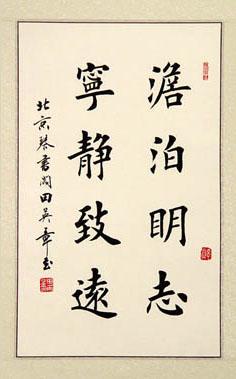 澹泊明志
寧靜致遠
北京琴書閣田英章書